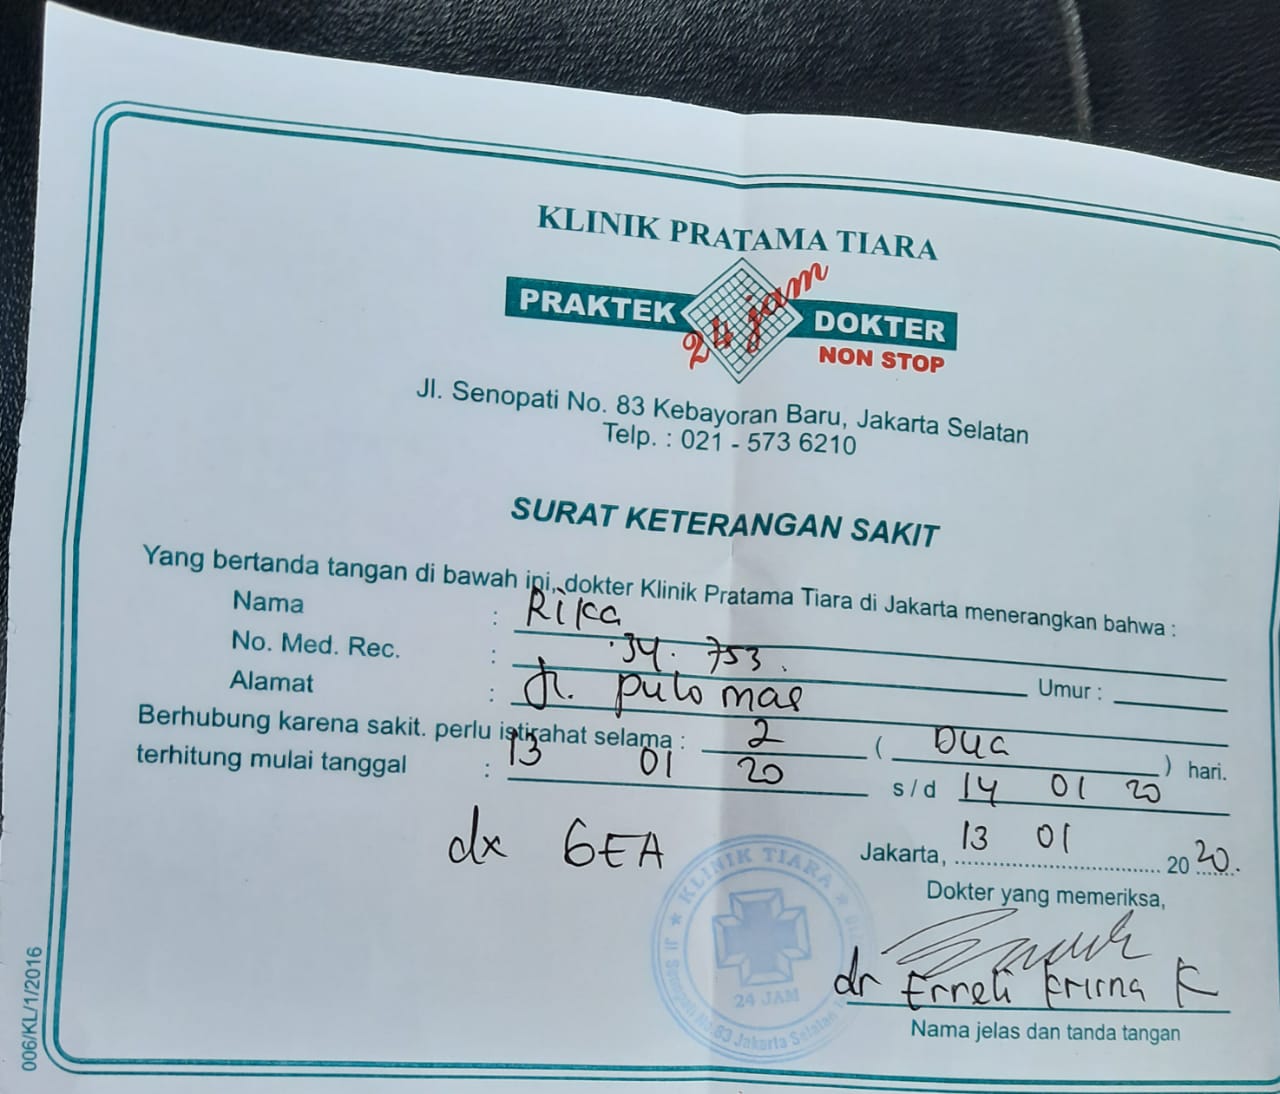 KLINIK PRATAMA TIARA
PRAKTEK 24 jam DOKTER
NON STOP
Jl. Senopati No. 83 Kebayoran Baru, Jakarta Selatan
Telp. : 021 - 573 6210
SURAT KETERANGAN SAKIT
Yang bertanda tangan di bawah ini, dokter Klinik Pratama Tiara di Jakarta menerangkan bahwa :
Nama : Rika
No. Med. Rec. : 34. 753. Umur :
Alamat : Jl. pulo mas
Berhubung karena sakit. perlu istirahat selama : 2 ( Dua ) hari.
terhitung mulai tanggal : 13 01 20 s/d 14 01 20
dx GEA
Jakarta, 13 01 2020.
Dokter yang memeriksa,
dr K
Nama jelas dan tanda tangan
KLINIK TIARA
24 JAM
Jl Senopati No.83 Jakarta Selatan
006/KL/1/2016